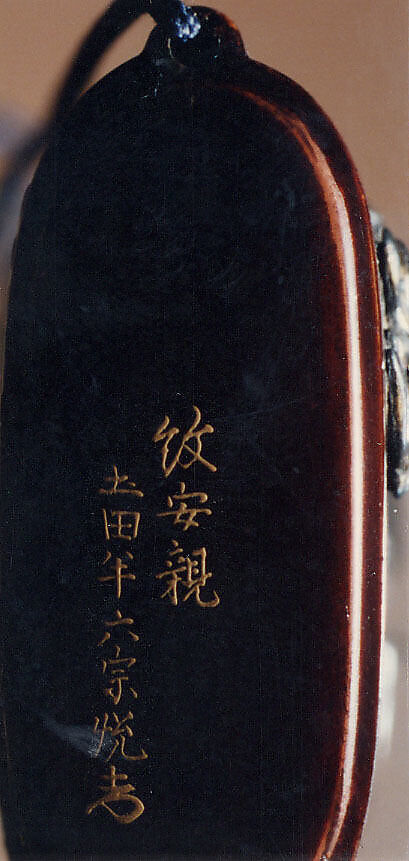 紋安親
土田半六宗悦書